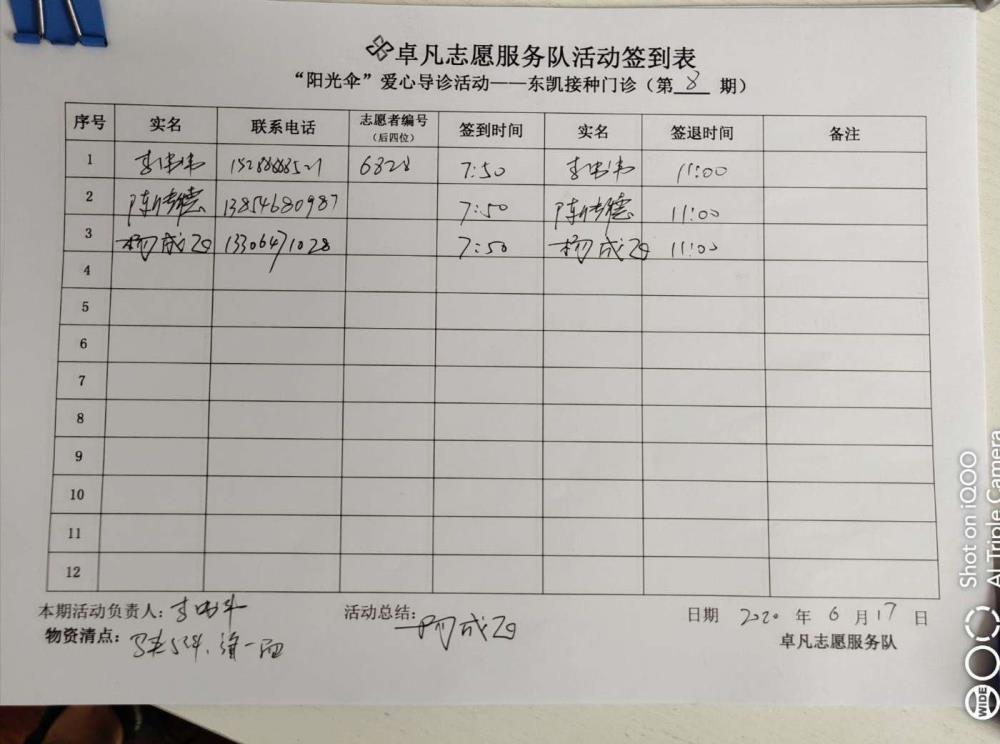 卓凡志愿服务队活动签到表
“阳光伞”爱心导诊活动——东凯接种门诊（第 8 期）
序号 实名 联系电话 志愿者编号（后四位） 签到时间 实名 签退时间 备注
1 6828 7:50 11:00
2 13854680987 7:50 11:00
3 杨成 13306471028 7:50 杨成 11:00
4
5
6
7
8
9
10
11
12
本期活动负责人： 活动总结： 日期 2020 年 6 月 17 日
物资清点： 卓凡志愿服务队
Shot on iQOO
AI Triple Camera
WIDE